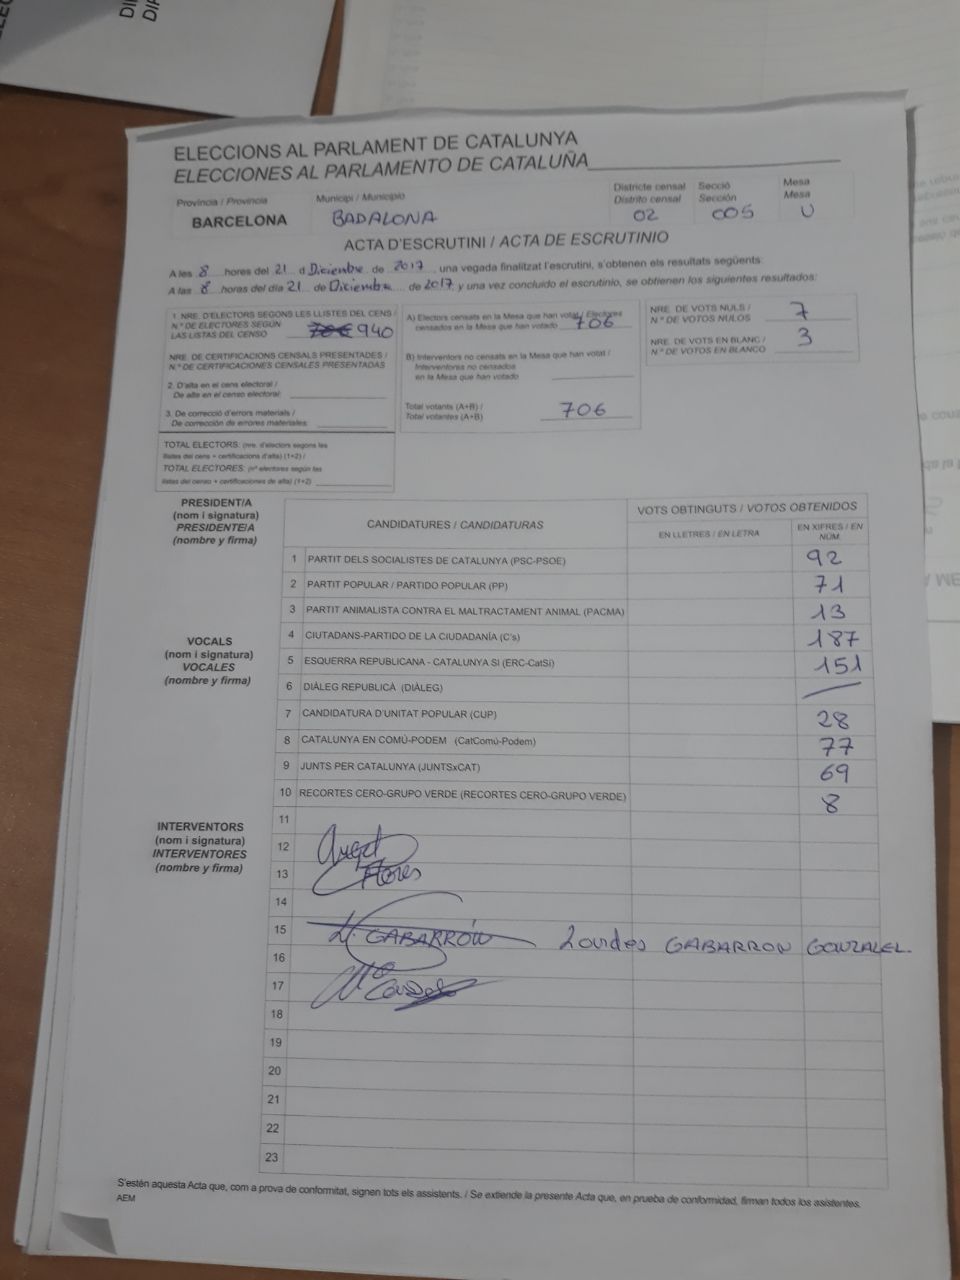 ELECCIONS AL PARLAMENT DE CATALUNYA
ELECCIONES AL PARLAMENTO DE CATALUÑA
Província / Provincia
Municipi / Municipio
Districte censal
Distrito censal
Secció
Sección
Mesa
Mesa
BARCELONA
BADALONA
02
005
U
ACTA D'ESCRUTINI / ACTA DE ESCRUTINIO
A les 8 hores del 21 d Diciembre de 2017, una vegada finalitzat l'escrutini, s'obtenen els resultats següents:
A las 8 horas del día 21 de Diciembre de 2017 y una vez concluido el escrutinio, se obtienen los siguientes resultados:
1. NRE. D'ELECTORS SEGONS LES LLISTES DEL CENS /
N.º DE ELECTORES SEGÚN
LAS LISTAS DEL CENSO 940
NRE. DE CERTIFICACIONS CENSALS PRESENTADES /
N.º DE CERTIFICACIONES CENSALES PRESENTADAS
2. D'alta en el cens electoral /
De alta en el censo electoral:
3. De correcció d'errors materials /
De corrección de errores materiales:
TOTAL ELECTORS: (nre. d'electors segons les
llistes del cens + certificacions d'alta) (1+2) /
TOTAL ELECTORES: (nº electores según las
listas del censo + certificaciones de alta) (1+2)
A) Electors censats en la Mesa que han votat / Electores
censados en la Mesa que han votado 706
B) Interventors no censats en la Mesa que han votat /
Interventores no censados
en la Mesa que han votado
Total votants (A+B) /
Total votantes (A+B) 706
NRE. DE VOTS NULS /
N.º DE VOTOS NULOS 7
NRE. DE VOTS EN BLANC /
N.º DE VOTOS EN BLANCO 3
PRESIDENT/A
(nom i signatura)
PRESIDENTE/A
(nombre y firma)
CANDIDATURES / CANDIDATURAS
VOTS OBTINGUTS / VOTOS OBTENIDOS
EN LLETRES / EN LETRA
EN XIFRES / EN
NÚM.
1 PARTIT DELS SOCIALISTES DE CATALUNYA (PSC-PSOE) 92
2 PARTIT POPULAR / PARTIDO POPULAR (PP) 71
3 PARTIT ANIMALISTA CONTRA EL MALTRACTAMENT ANIMAL (PACMA) 13
4 CIUTADANS-PARTIDO DE LA CIUDADANÍA (C's) 187
5 ESQUERRA REPUBLICANA - CATALUNYA SI (ERC-CatSí) 151
6 DIÀLEG REPUBLICÀ (DIÀLEG)
7 CANDIDATURA D'UNITAT POPULAR (CUP) 28
8 CATALUNYA EN COMÚ-PODEM (CatComú-Podem) 77
9 JUNTS PER CATALUNYA (JUNTSxCAT) 69
10 RECORTES CERO-GRUPO VERDE (RECORTES CERO-GRUPO VERDE) 8
VOCALS
(nom i signatura)
VOCALES
(nombre y firma)
INTERVENTORS
(nom i signatura)
INTERVENTORES
(nombre y firma)
11
12 Angel
13 Flores
14
15 L. GABARRÓN Lourdes GABARRON GONZALEZ
16
17
18
19
20
21
22
23
S'estén aquesta Acta que, com a prova de conformitat, signen tots els assistents. / Se extiende la presente Acta que, en prueba de conformidad, firman todos los asistentes.
AEM